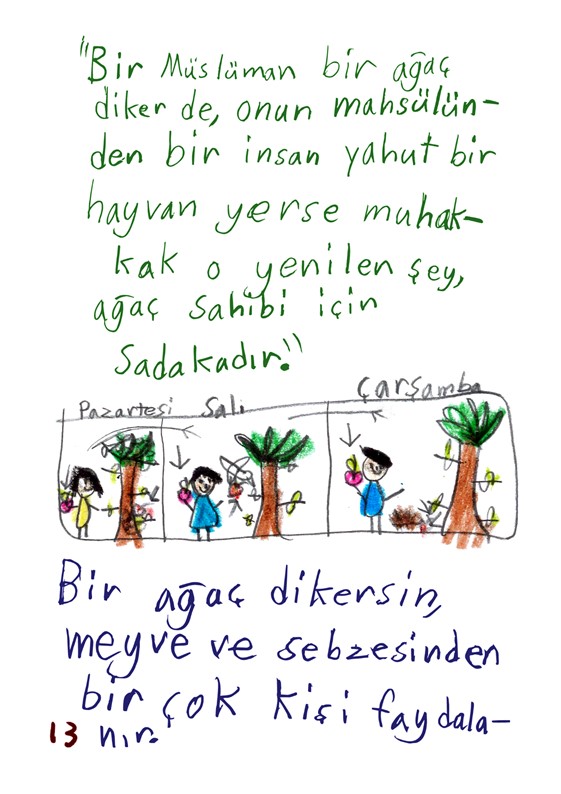 "Bir Müslüman bir ağaç
diker de, onun mahsülün-
den bir insan yahut bir
hayvan yerse muhak-
kak o yenilen şey,
ağaç sahibi için
sadakadır."
Pazartesi Salı Çarşamba
Bir ağaç dikersin,
meyve ve sebzesinden
bir çok kişi faydala-
13 nır.